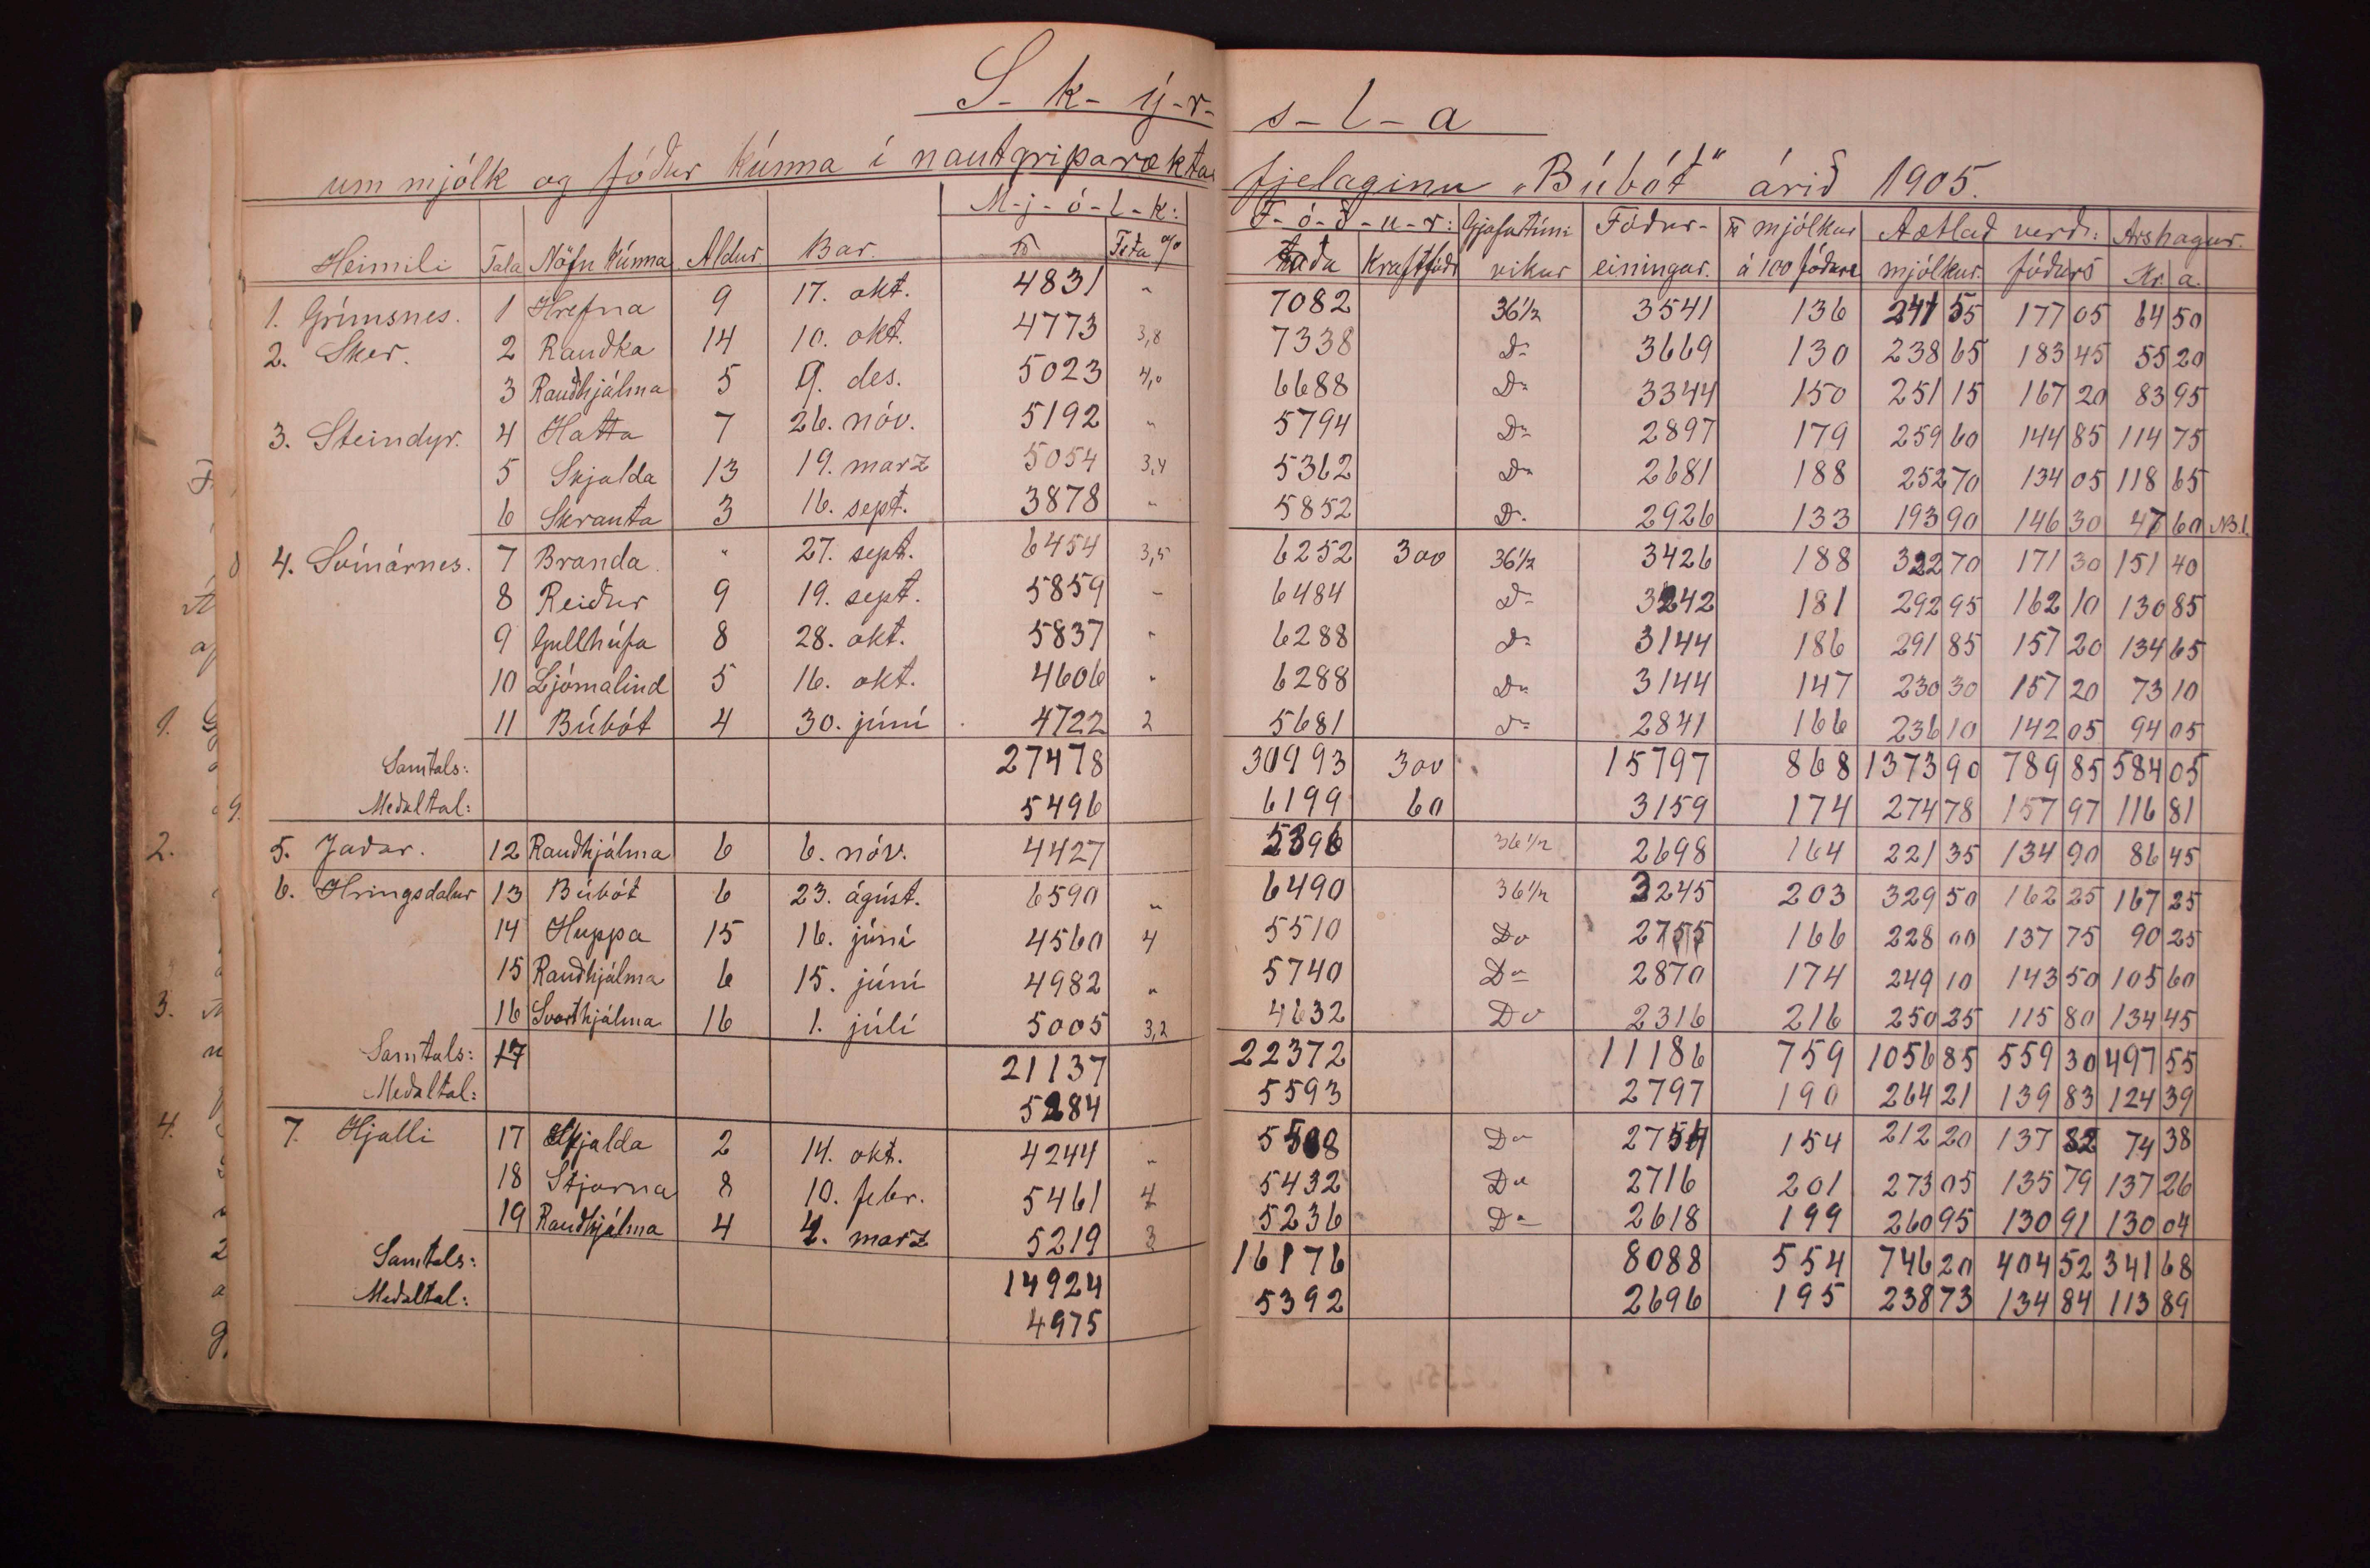 S- k- ý-r- s-l-a
um mjólk og fóður kúnna í nautgriparæktar fjelaginu „Búbót" árið 1905.
M-j-ó-l-k: F-ó-ð-u-r: Gjafatími Fóður- ℔ mjólkur Áætlað verð: Árshagur.
Heimili Tala Nöfn kúnna Aldur Bar. ℔ Feta % Taða Kraftfóðr vikur einingar. á 100 fóðure mjólkur fóðurs Kr. a.
1. Grímsnes. 1 Hrefna 9 17. okt. 4831 " 7082 36½ 3541 136 241 55 177 05 64 50
2. Sker. 2 Rauðka 14 10. okt. 4773 3,8 7338 Do 3669 130 238 65 183 45 55 20
3 Rauðhjálma 5 9. des. 5023 4,0 6688 Do 3344 150 251 15 167 20 83 95
3. Steindyr. 4 Hatta 7 26. nóv. 5192 " 5794 Do 2897 179 259 60 144 85 114 75
5 Skjalda 13 19. marz 5054 3,4 5362 Do 2681 188 252 70 134 05 118 65
6 Skrauta 3 16. sept. 3878 " 5852 Do 2926 133 193 90 146 30 47 60 NB.1.
4. Svínárnes. 7 Branda. " 27. sept. 6454 3,5 6252 300 36½ 3426 188 322 70 171 30 151 40
8 Reiður 9 19. sept. 5859 " 6484 Do 3242 181 292 95 162 10 130 85
9 Gullhúfa 8 28. okt. 5837 " 6288 Do 3144 186 291 85 157 20 134 65
10 Ljómalind 5 16. okt. 4606 " 6288 Do 3144 147 230 30 157 20 73 10
11 Búbót 4 30. júní 4722 2 5681 Do 2841 166 236 10 142 05 94 05
Samtals: 27478 30993 300 15797 868 1373 90 789 85 584 05
Meðaltal: 5496 6199 60 3159 174 274 78 157 97 116 81
5. Jaðar. 12 Rauðhjálma 6 6. nóv. 4427 5396 36½ 2698 164 221 35 134 90 86 45
6. Hringsdalur 13 Búbót 6 23. ágúst. 6590 " 6490 36½ 3245 203 329 50 162 25 167 25
14 Huppa 15 16. júní 4560 4 5510 Do 2755 166 228 00 137 75 90 25
15 Rauðhjálma 6 15. júní 4982 " 5740 Do 2870 174 249 10 143 50 105 60
16 Svarthjálma 16 1. júlí 5005 3,2 4632 Do 2316 216 250 25 115 80 134 45
Samtals: 17 21137 22372 11186 759 1056 85 559 30 497 55
Meðaltal: 5284 5593 2797 190 264 21 139 83 124 39
7. Hjalli 17 Skjalda 2 14. okt. 4244 " 5508 Do 2754 154 212 20 137 82 74 38
18 Stjarna 8 10. febr. 5461 4 5432 Do 2716 201 273 05 135 79 137 26
19 Rauðhjálma 4 2. marz 5219 3 5236 Do 2618 199 260 95 130 91 130 04
Samtals: 14924 16176 8088 554 746 20 404 52 341 68
Meðaltal: 4975 5392 2696 195 238 73 134 84 113 89